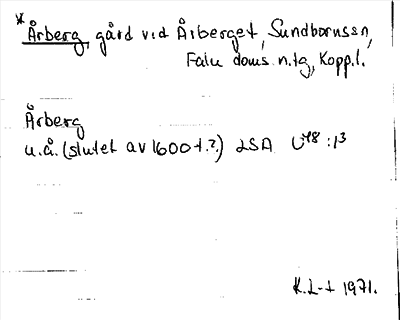 * Årberg, gård vid Årberget, Sundbornssn,
Falu doms.n.tg, Kopp.l.
Årberg
u.å. (slutet av 1600-t.?) LSA U48:1³
K.L-t 1971.